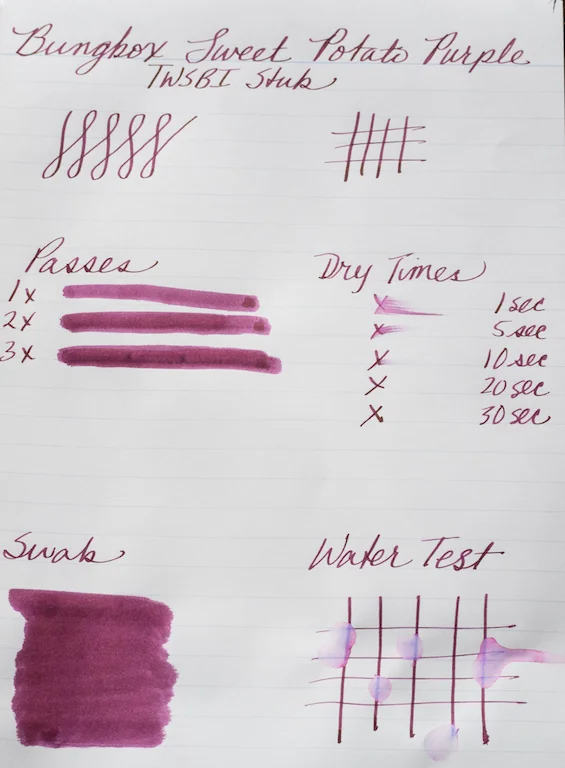 Bungbox Sweet Potato Purple
TWSBI Stub
Passes
1x
2x
3x
Dry Times
x 1 sec
x 5 sec
x 10 sec
x 20 sec
x 30 sec
Swab
Water Test